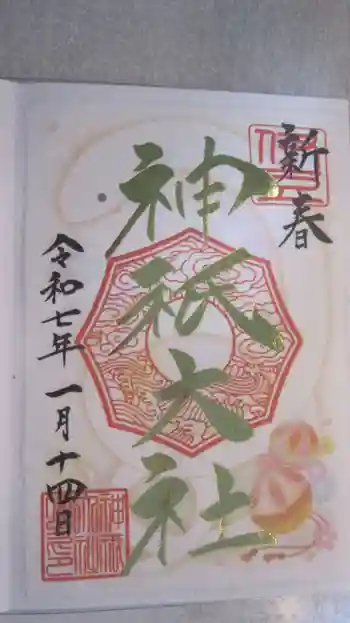 新春
神祇大社
令和七年一月十四日